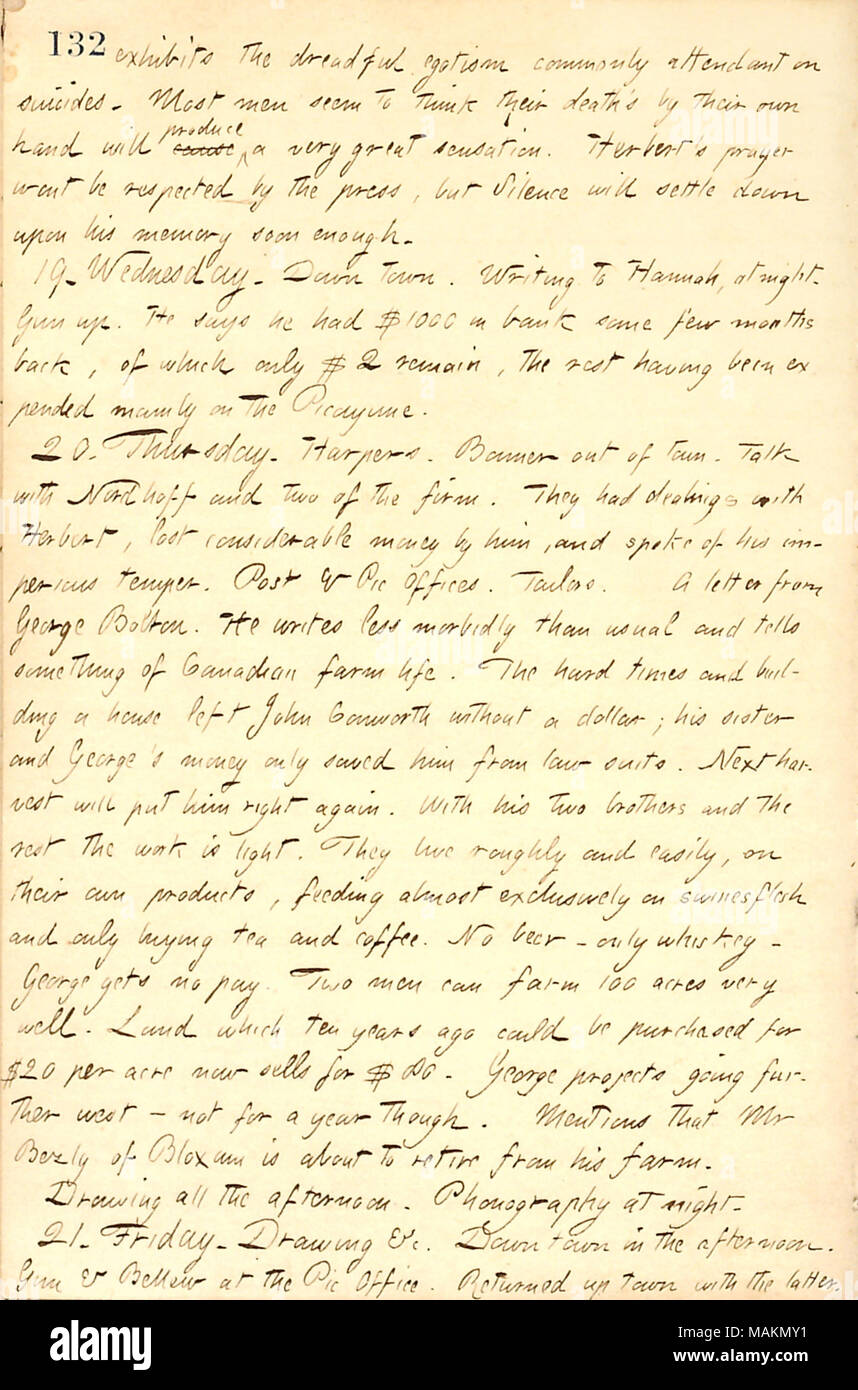 132 exhibits the dreadful egotism commonly attendant on
suicides. Most men seem to think their death's by their own
hand will cause produce a very great sensation. Herbert's prayer
wont be respected by the press, but Silence will settle down
upon his memory soon enough.
19. Wednesday. Down town. Writing to Hannah, at night.
Gun up. He says he had $1000 in bank some few months
back, of which only $2 remain, the rest having been ex
pended mainly on the Picayune.
20. Thursday. Harpers. Bonner out of town. Talk
with Nordhoff and two of the firm. They had dealings with
Herbert, lost considerable money by him, and spoke of his im-
perious temper. Post & Pic Offices. Tailors. A letter from
George Bolton. He writes less morbidly than usual and tells
something of Canadian farm life. The hard times and buil-
ding a house left John Conworth without a dollar; his sister
and George's money only saved him from law suits. Next har-
vest will put him right again. With his two brothers and the
rest the work is light. They live roughly and easily, on
their own products, feeding almost exclusively on swinesflesh
and only buying tea and coffee. No beer - only whiskey -
George gets no pay. Two men can farm 100 acres very
well. Land which ten years ago could be purchased for
$20 per acre now sells for $80. George projects going fur-
ther west - not for a year though. Mentions that Mr
Bezly of Bloxam is about to retire from his farm.
Drawing all the afternoon. Phonography at night.
21. Friday. Drawing &c. Down town in the afternoon.
Gun & Bellew at the Pic Office. Returned up town with the latter.
alamy
Image ID: MAKMY1
www.alamy.com